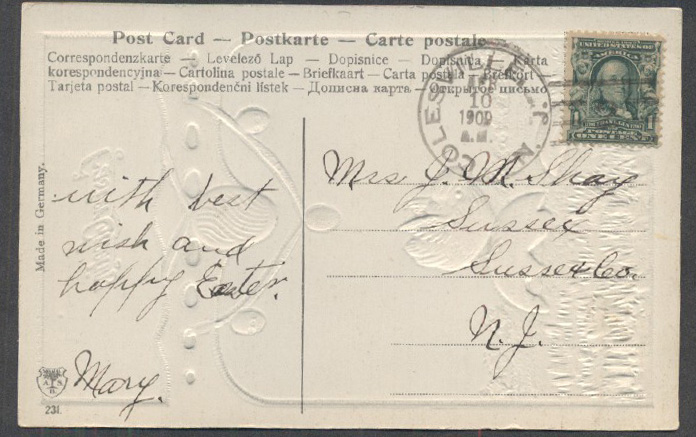 Post Card — Postkarte — Carte postale
Correspondenzkarte — Levelező Lap — Dopisnice — Dopisnica — Karta
korespondencyjna — Cartolina postale — Briefkaart — Carta postala — Brefkort
Tarjeta postal — Korespondenční lístek — Дописна карта — Открытое письмо
UNITED STATES OF
AMERICA
POSTAGE
ONE CENT
COLESVILLE N. J.
10
1909
A.M.
Made in Germany.
with best
wish and
happy Easter.
Mary.
Mrs J. M. Shay
Sussex
Sussex Co.
N. J.
231.